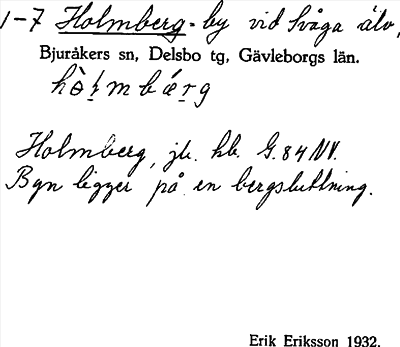 1-7 Holmberg - by vid Svåga älv,
Bjuråkers sn, Delsbo tg, Gävleborgs län.
Holmberg, jb. kb. G. 84 NV.
Byn ligger på en bergsluttning.
Erik Eriksson 1932.